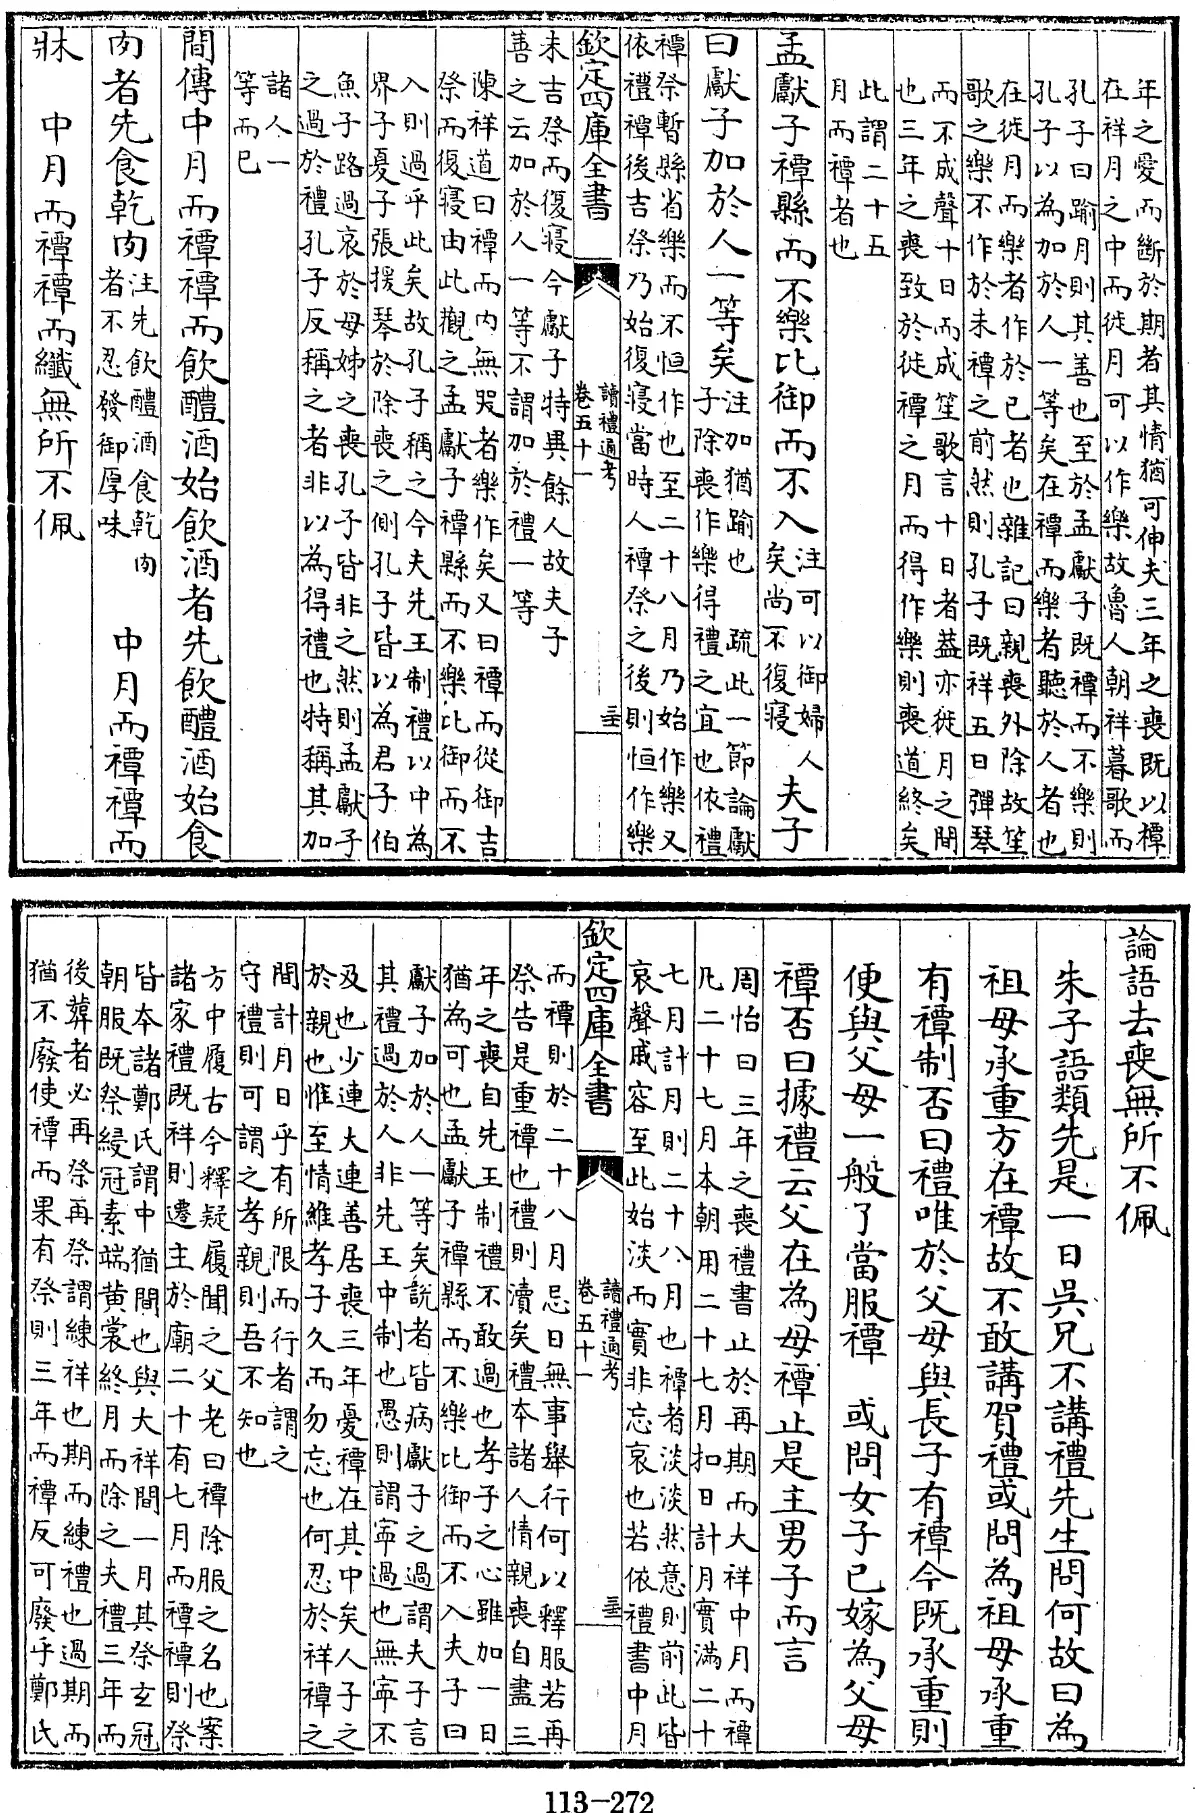 年之愛而斷於期者其情猶可伸夫三年之喪既以禫
在祥月之中而徙月可以作樂故魯人朝祥暮歌而
孔子曰踰月則其善也至於孟獻子既禫而不樂則
孔子以為加於人一等矣在禫而樂者聽於人者也
在徙月而樂者作於已者也雜記曰親喪外除故笙
歌之樂不作於未禫之前然則孔子既祥五日彈琴
而不成聲十日而成笙歌言十日者葢亦徙月之間
也三年之喪致於徙禫之月而得作樂則喪道終矣
此謂二十五
月而禫者也
孟獻子禫縣而不樂比御而不入注可以御婦人矣尚不復寢夫子
曰獻子加於人一等矣注加猶踰也 疏此一節論獻子除喪作樂得禮之宜也依禮
禫祭暫縣省樂而不恒作也至二十八月乃始作樂又
依禮禫後吉祭乃始復寢當時人禫祭之後則恒作樂
欽定四庫全書
讀禮通考
卷五十一
未吉祭而復寢今獻子特異餘人故夫子
善之云加於人一等不謂加於禮一等
陳祥道曰禫而内無哭者樂作矣又曰禫而從御吉
祭而復寢由此觀之孟獻子禫縣而不樂比御而不
入則過乎此矣故孔子稱之今夫先王制禮以中為
界子憂子張援琴於除喪之側孔子皆以為君子伯
魚子路過哀於母姊之喪孔子皆非之然則孟獻子
之過於禮孔子反稱之者非以為得禮也特稱其加
諸人一
等而已
間傳中月而禫禫而飲醴酒始飲酒者先飲醴酒始食
肉者先食乾肉注先飲醴酒食乾肉者不忍發御厚味 中月而禫禫而
牀 中月而禫禫而纖無所不佩
論語去喪無所不佩
朱子語類先是一日吳兄不講禮先生問何故曰為
祖母承重方在禫故不敢講賀禮或問為祖母承重
有禫制否曰禮唯於父母與長子有禫今既承重則
便與父母一般了當服禫 或問女子已嫁為父母
禫否曰據禮云父在為母禫止是主男子而言
周怡曰三年之喪禮書止於再期而大祥中月而禫
凡二十七月本朝用二十七月扣日計月實滿二十
七月計月則二十八月也禫者淡淡然意則前此皆
哀聲戚容至此始淡而實非忘哀也若依禮書中月
欽定四庫全書
讀禮通考
卷五十一
而禫則於二十八月忌日無事舉行何以釋服若再
祭告是重禫也禮則瀆矣禮本諸人情親喪自盡三
年之喪自先王制禮不敢過也孝子之心雖加一日
猶為可也孟獻子禫縣而不樂比御而不入夫子曰
獻子加於人一等矣說者皆病獻子之過謂夫子言
其禮過於人非先王中制也愚則謂寧過也無寧不
及也少連大連善居喪三年憂禫在其中矣人子之
於親也惟至情維孝子久而勿忘也何忍於祥禫之
間計月日乎有所限而行者謂之
守禮則可謂之孝親則吾不知也
方中履古今釋疑履聞之父老曰禫除服之名也案
諸家禮既祥則遷主於廟二十有七月而禫禫則祭
皆本諸鄭氏謂中猶間也與大祥間一月其祭玄冠
朝服既祭綅冠素端黄裳終月而除之夫禮三年而
後葬者必再祭再祭謂練祥也期而練禮也過期而
猶不廢使禫而果有祭則三年而禫反可廢乎鄭氏
113-272